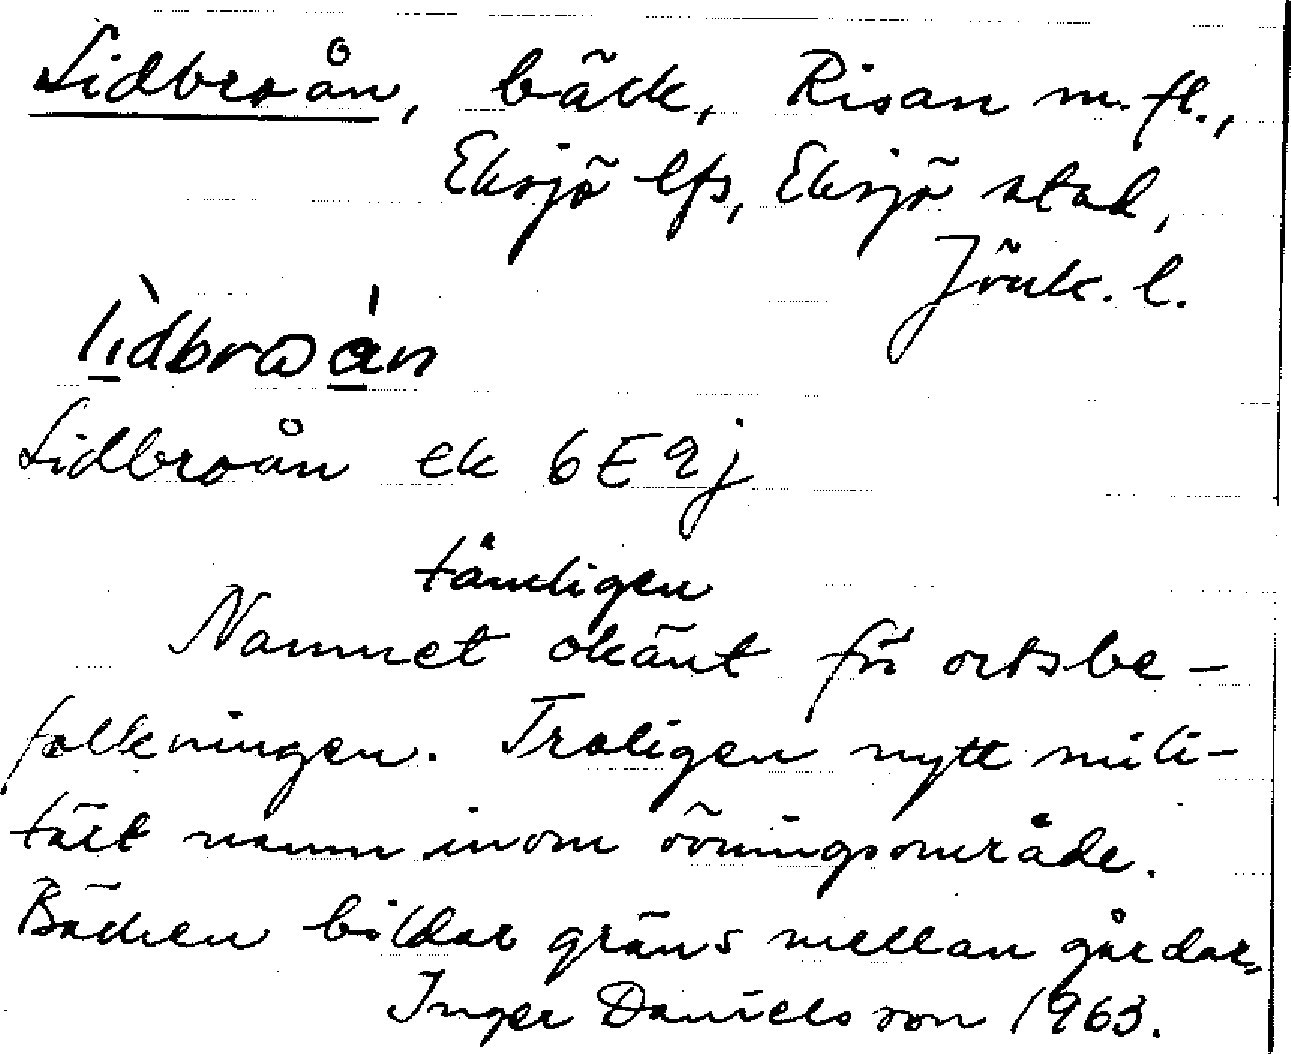 Lidbroån, bäck, Risan m.fl.,
Eksjö lfs, Eksjö stad,
Jönk. l.
lìdbroán
Lidbroån ek 6E9j
tämligen
Namnet okänt för ortsbe-
folkningen. Troligen nytt mili-
tärt namn inom övningsområde.
Bäcken bildar gräns mellan gårdar.
Inger Danielsson 1963.